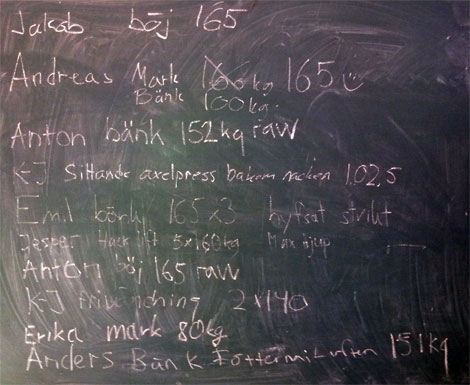 Jakob böj 165
Andreas Mark 160kg 165
Bänk 100kg
Anton bänk 152kg raw
K-J Sittande axelpress bakom nacken 102,5
Emil bänk 165x3 hyfsat strikt
Jesper 5x160kg Max
Anton böj 165 raw
K-J frivändning 2x140
Erika mark 80kg
Anders Bänk Fötterna i luften 151kg